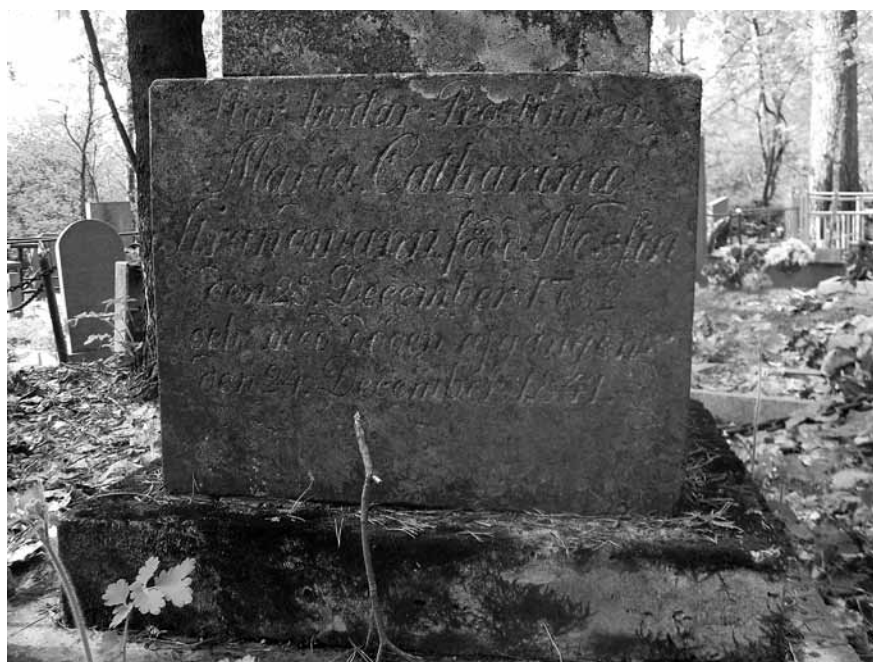 Här hvilar Prostinnan
Maria Catharina
född Neslin
den 28 December
och döden
den 24 December 1841.